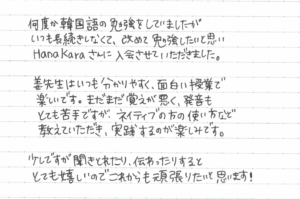 何度か韓国語の勉強をしていましたが
いつも長続きしなくて、改めて勉強したいと思い
HanaKaraさんに入会させていただきました。
姜先生はいつも分かりやすく、面白い授業で
楽しいです。まだまだ覚えが悪く、発音も
とても苦手ですが、ネイティブの方の使い方など
教えていただき、実践するのが楽しみです。
少しですが聞きとれたり、伝わったりすると
とても嬉しいのでこれからも頑張りたいと思います!